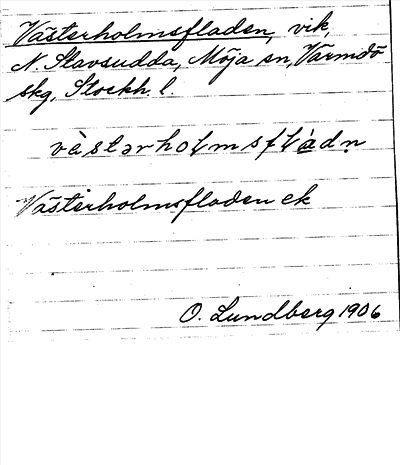 Västerholmsfladen, vik,
N. Stavsudda, Möja sn, Värmdö
skg, Stockh. l.
västərholmsfládn
Västerholmsfladen ek
O. Lundberg 1906